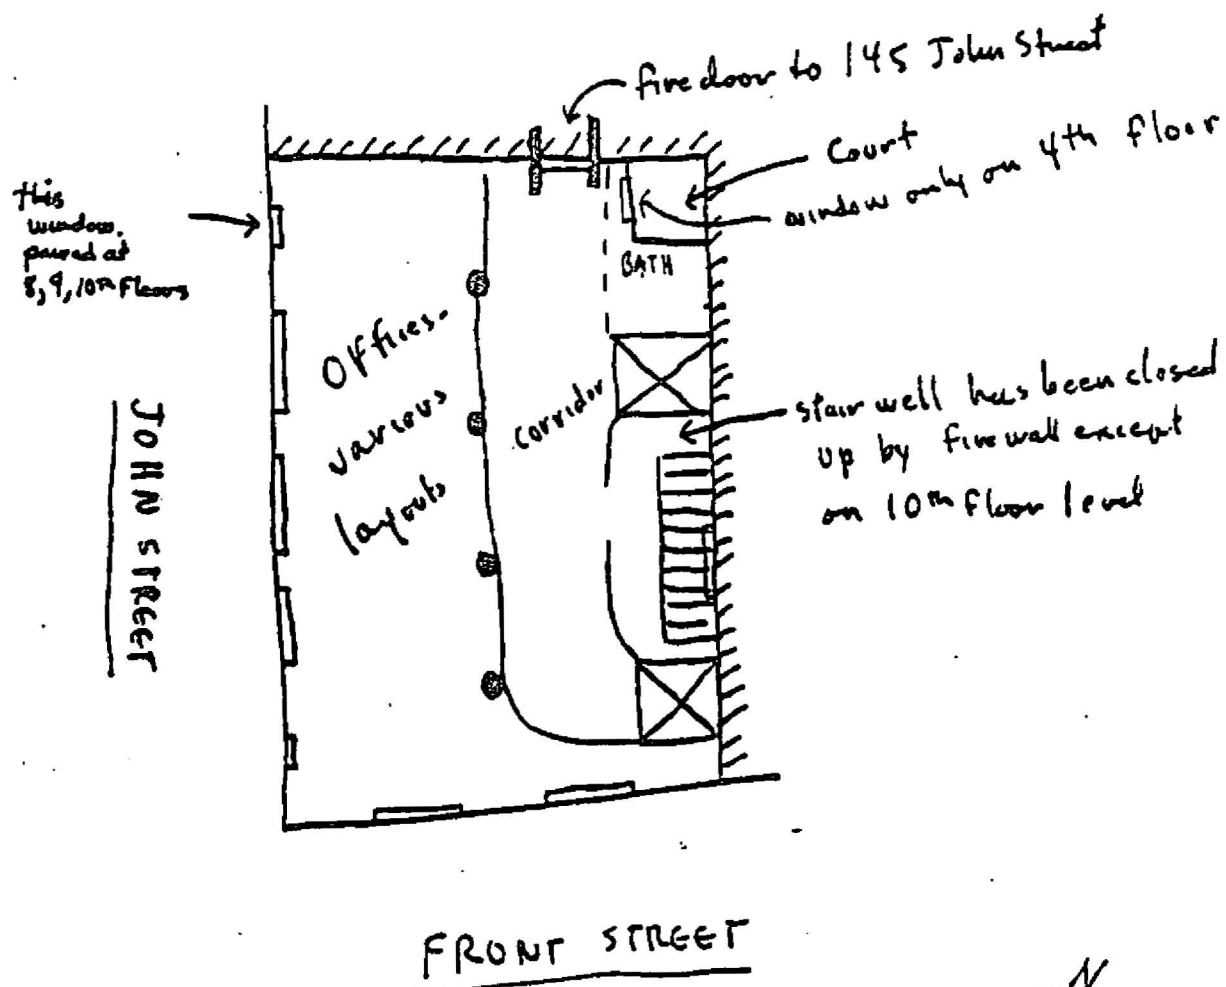 fire door to 145 John Street
Court
window only on 4th floor
this
window.
paired at
8, 9, 10th Floors
BATH
Offices-
various
layouts
corridor
stair well has been closed
up by fire wall except
on 10th floor level
JOHN STREET
FRONT STREET
N